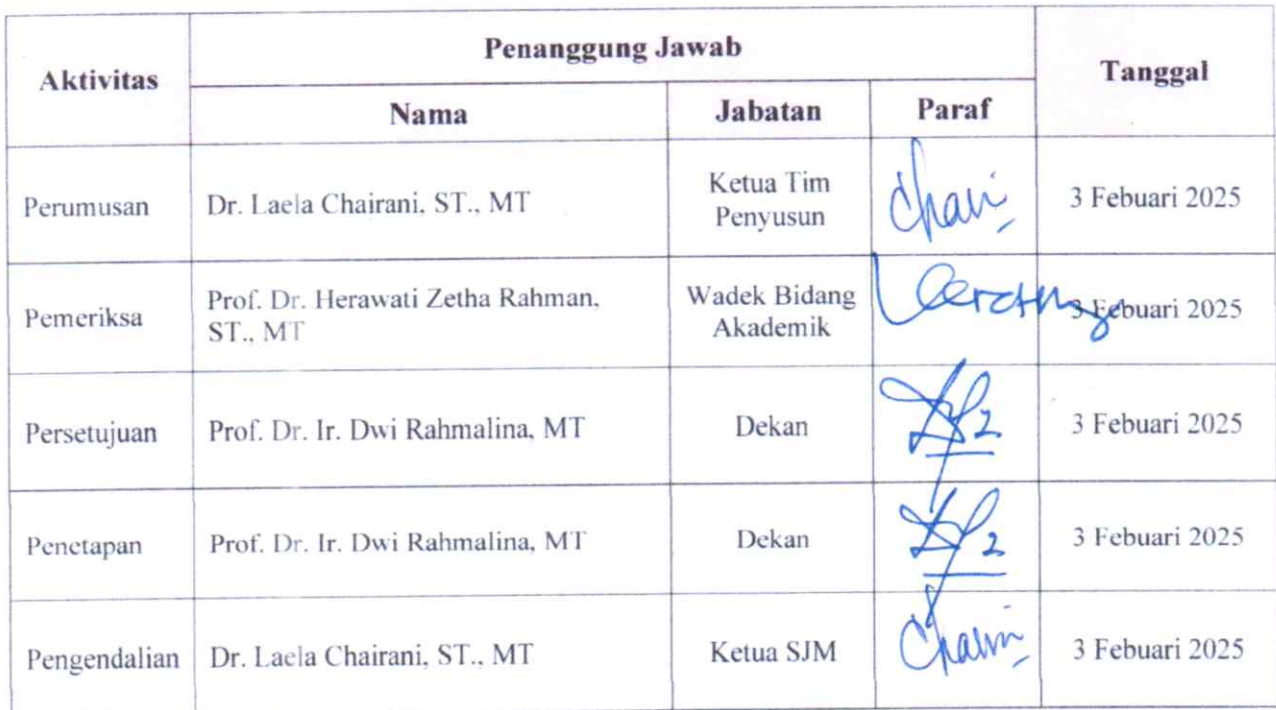 Aktivitas
Penanggung Jawab
Tanggal
Nama
Jabatan
Paraf
Perumusan
Dr. Laela Chairani, ST., MT
Ketua Tim
Penyusun
3 Febuari 2025
Pemeriksa
Prof. Dr. Herawati Zetha Rahman,
ST., MT
Wadek Bidang
Akademik
3 Febuari 2025
Persetujuan
Prof. Dr. Ir. Dwi Rahmalina, MT
Dekan
3 Febuari 2025
Penetapan
Prof. Dr. Ir. Dwi Rahmalina, MT
Dekan
3 Febuari 2025
Pengendalian
Dr. Laela Chairani, ST., MT
Ketua SJM
3 Febuari 2025